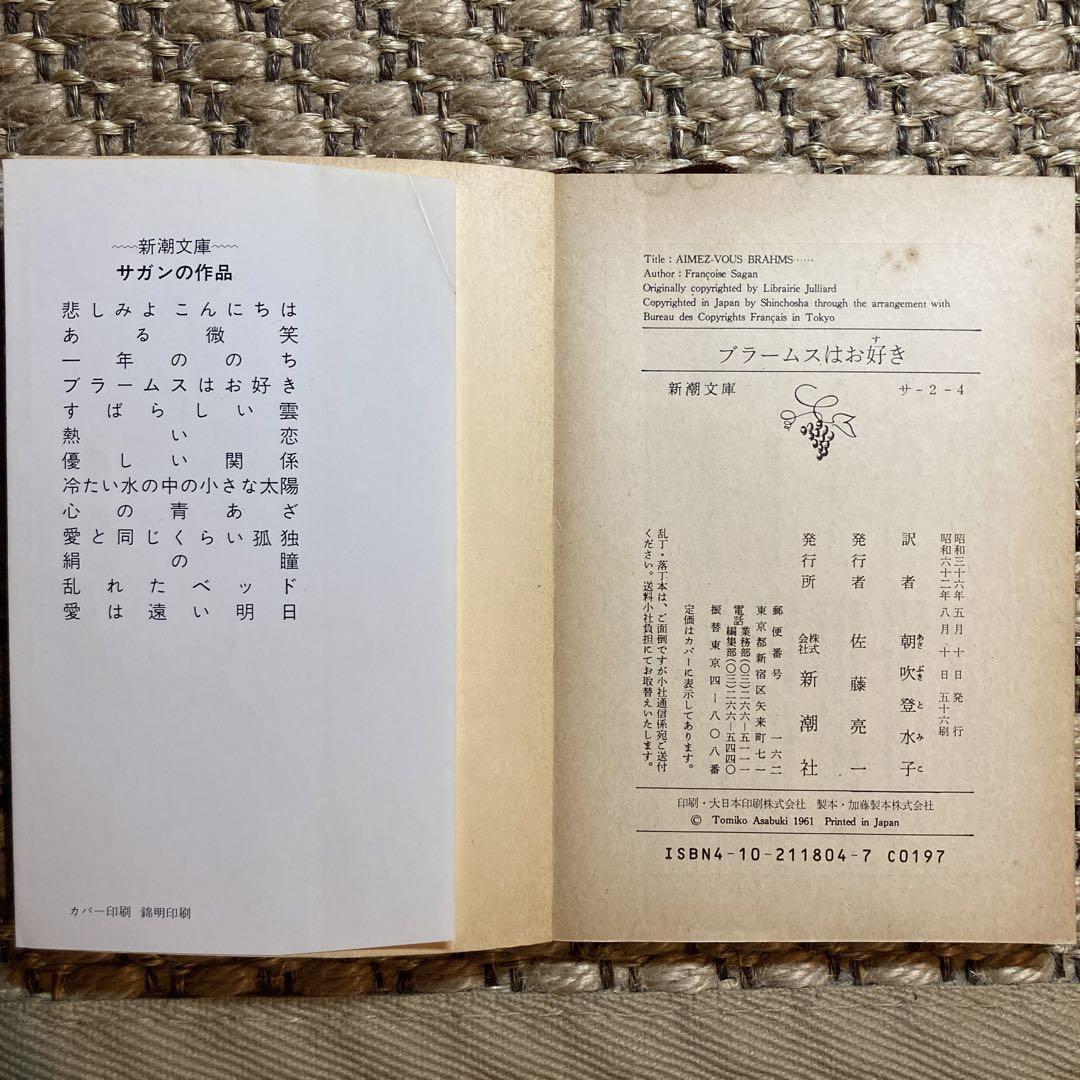 新潮文庫
サガンの作品
悲しみよこんにちは
ある微笑
一年ののち
ブラームスはお好き
すばらしい雲
熱い恋
優しい関係
冷たい水の中の小さな太陽
心の青あざ
愛と同じくらい孤独
絹の瞳
乱れたベッド
愛は遠い明日
カバー印刷 錦明印刷
Title : AIMEZ-VOUS BRAHMS……
Author : Françoise Sagan
Originally copyrighted by Librairie Julliard
Copyrighted in Japan by Shinchosha through the arrangement with
Bureau des Copyrights Français in Tokyo
ブラームスはお好き
す
新潮文庫 サ-2-4
昭和三十六年五月十日発行
昭和六十二年八月十日五十六刷
訳者 朝吹登水子
あさ ぶき と み こ
発行者 佐藤亮一
発行所 株式会社 新潮社
郵便番号 一六二
東京都新宿区矢来町七一
電話 業務部(〇三)二六六―五一一一
編集部(〇三)二六六―五四四〇
振替東京四―八〇八番
定価はカバーに表示してあります。
乱丁・落丁本は、ご面倒ですが小社通信係宛ご送付
ください。送料小社負担にてお取替えいたします。
印刷・大日本印刷株式会社 製本・加藤製本株式会社
© Tomiko Asabuki 1961 Printed in Japan
ISBN4-10-211804-7 C0197